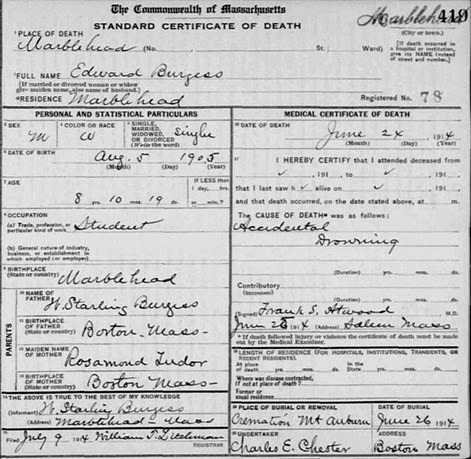 The Commonwealth of Massachusetts
STANDARD CERTIFICATE OF DEATH
Marblehead 419
(City or town.)
1 PLACE OF DEATH
Marblehead (No. St. Ward)
[If death occurred in a hospital or institution, give its NAME instead of street and number.]
2 FULL NAME Edward Burgess
[If married or divorced woman or widow give maiden name, also name of husband.]
RESIDENCE Marblehead
Registered No. 78
PERSONAL AND STATISTICAL PARTICULARS
3 SEX M
4 COLOR OR RACE W
5 SINGLE, MARRIED, WIDOWED, OR DIVORCED (Write the word) Single
6 DATE OF BIRTH
Aug. 5 1905
(Month) (Day) (Year)
7 AGE
If LESS than 1 day, hrs. or min.?
8 yrs. 10 mos. 19 ds.
8 OCCUPATION
(a) Trade, profession, or particular kind of work Student
(b) General nature of industry, business, or establishment in which employed (or employer)
9 BIRTHPLACE
(State or country) Marblehead
PARENTS
10 NAME OF FATHER W. Starling Burgess
11 BIRTHPLACE OF FATHER
(State or country) Boston Mass-
12 MAIDEN NAME OF MOTHER Rosamond Tudor
13 BIRTHPLACE OF MOTHER
(State or country) Boston Mass-
14 THE ABOVE IS TRUE TO THE BEST OF MY KNOWLEDGE
(Informant) W. Starling Burgess
(Address) Marblehead Mass
15 Filed July 9 1914 William T.
MEDICAL CERTIFICATE OF DEATH
16 DATE OF DEATH
June 24 1914
(Month) (Day) (Year)
17 I HEREBY CERTIFY that I attended deceased from
191 , to 191 ,
that I last saw h alive on 191 ,
and that death occurred, on the date stated above, at m.
The CAUSE OF DEATH* was as follows:
Accidental
Drowning
(Duration) yrs. mos. ds.
Contributory
(SECONDARY)
(Duration) yrs. mos. ds.
Signed Frank S. Atwood M.D.
June 25 1914 (Address) Salem Mass
* If death followed injury or violence the certificate of death must be made out by the Medical Examiner.
18 LENGTH OF RESIDENCE (FOR HOSPITALS, INSTITUTIONS, TRANSIENTS, OR RECENT RESIDENTS).
At place of death yrs. mos. ds. In the State yrs. mos. ds.
Where was disease contracted, if not at place of death?
Former or usual residence
19 PLACE OF BURIAL OR REMOVAL
Cremation Mt Auburn
DATE OF BURIAL
June 26 1914
20 UNDERTAKER
Charles E. Chester
ADDRESS
Boston Mass